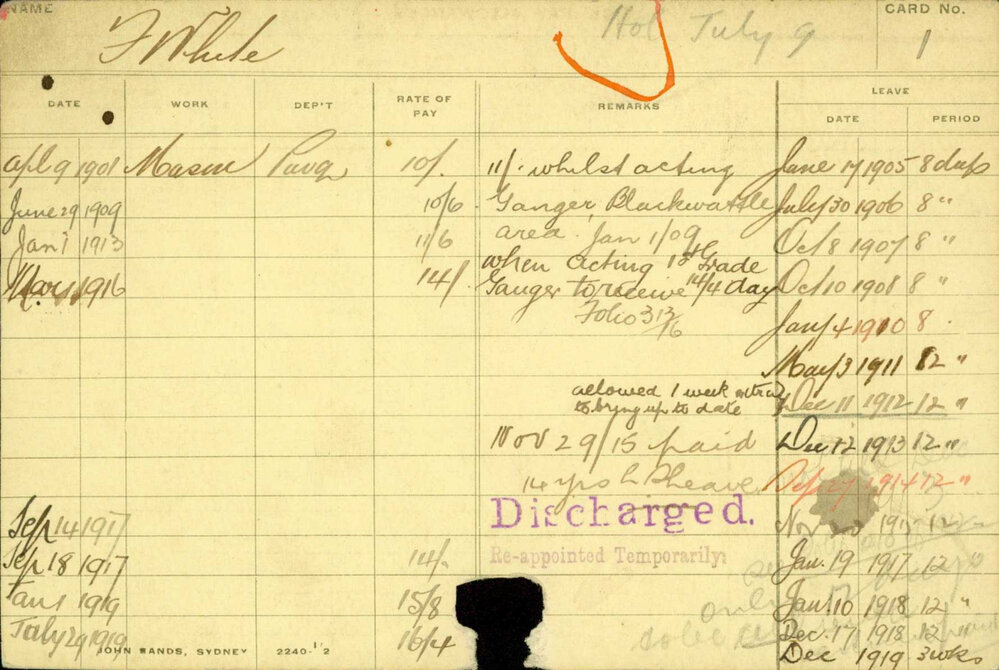 NAME F White Hol July 9 CARD No. 1
DATE WORK DEP'T RATE OF PAY REMARKS LEAVE
DATE PERIOD
Apl 9 1901 Mason Pavg 10/. 11/. whilst acting June 17 1905 8 days
June 29 1909 10/6 Ganger, Blackwattle July 30 1906 8 "
Jan 1 1913 11/6 area. Jan 1/09 Oct 8 1907 8 "
when acting 1st Grade
Mar 1 1916 14/. Ganger to receive 14/4 day Oct 10 1908 8 "
Folio 3 13/16
Jan 4 1910 8 "
May 3 1911 12 "
allowed 1 week extra
to bring up to date Dec 11 1912 12 "
Nov 29/15 paid Dec 12 1913 12 "
14 yrs 1914 12 "
Sep 14 1917 Discharged. Nov 12
Sep 18 1917 14/. Re-appointed Temporarily: Jan. 19 1917 12 "
Jan 1 1919 15/8 only Jan. 10 1918 12 "
July 29 1919 16/4 Dec. 17 1918 12 "
JOHN SANDS, SYDNEY 2240-1'2 Dec 1919 3 wks